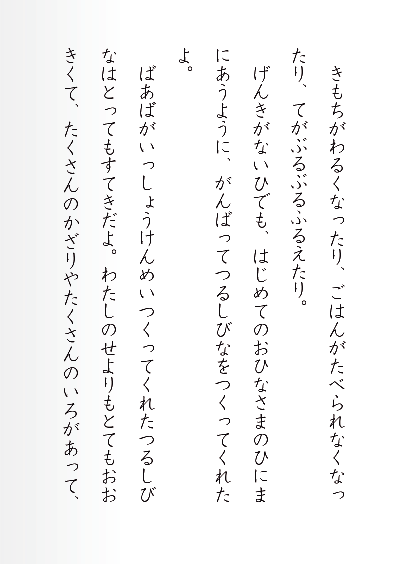 きもちがわるくなったり、ごはんがたべられなくなっ
たり、てがぶるぶるふるえたり。
げんきがないひでも、はじめてのおひなさまのひにま
にあうように、がんばってつるしびなをつくってくれた
よ。
ばあばがいっしょうけんめいつくってくれたつるしび
なはとってもすてきだよ。わたしのせよりもとてもおお
きくて、たくさんのかざりやたくさんのいろがあって、